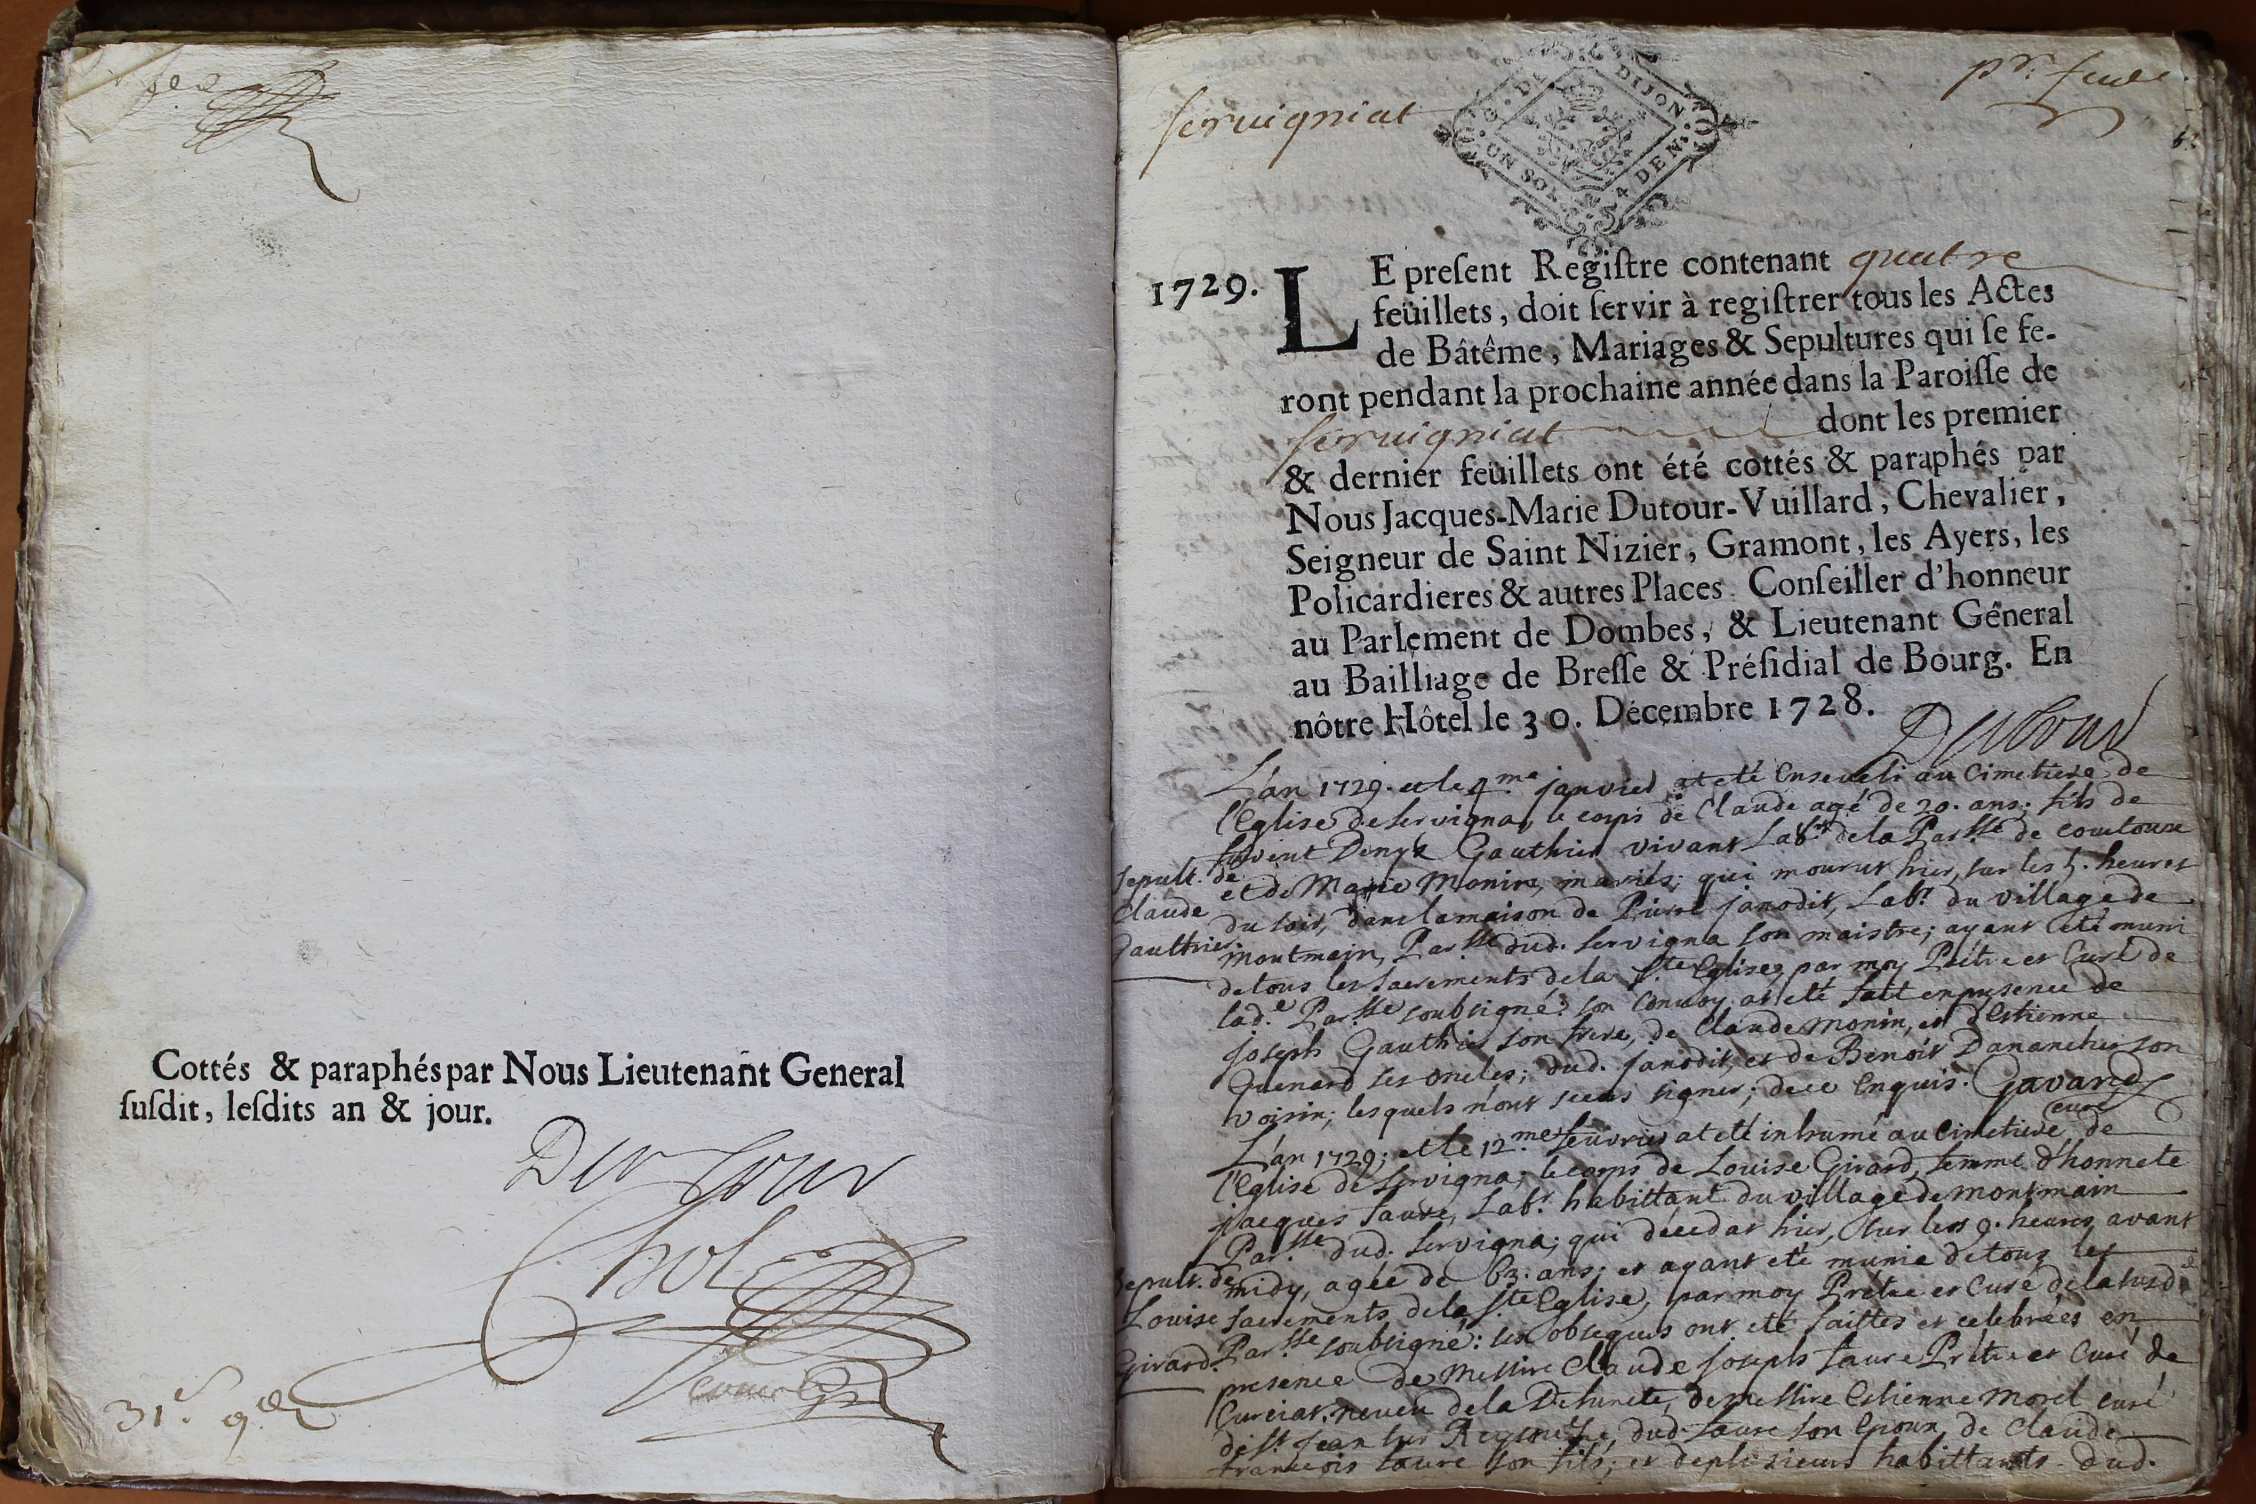 Cottés & paraphés par Nous Lieutenant General
ſuſdit, leſdits an & jour.
Dutour
31.
ſeruigniat
pr. fuel.
G. DE DIJON
UN SOL 4 DEN.
1729.
LE preſent Regiſtre contenant quatre
feüillets, doit ſervir à regiſtrer tous les Actes
de Bâtême, Mariages & Sepultures qui ſe fe-
ront pendant la prochaine année dans la Paroiſſe de
ſeruigniat dont les premier
& dernier feüillets ont été cottés & paraphés par
Nous Jacques-Marie Dutour-Vuillard, Chevalier,
Seigneur de Saint Nizier, Gramont, les Ayers, les
Policardieres & autres Places. Conſeiller d'honneur
au Parlement de Dombes, & Lieutenant Géneral
au Bailliage de Breſſe & Préſidial de Bourg. En
nôtre Hôtel le 30. Décembre 1728.
Dutour
L'an 1729. et le 4.me janvier at eté Enseveli au Cimetiere de
l'Eglise de Servigna, le corps de Claude agé de 20. ans; fils de
Denys Gauthier vivant Lab.r de la Par.sse de courtoux
et de Marie Monin, mariés; qui mourut hier, sur les 5. heures
du soir, dans la maison de Pierre janodit, Lab.r du village de
montmain, Par.sse dud. Servigna son maistre; ayant eté muni
de tous les sacrements de la S.te Eglise, par moy Prétre et Curé de
lad.e Par.sse soubsigné: son convoy at eté fait en presence de
Joseph Gauthier son frere, de Claude monin, et d'Estienne
Quenard ses oncles; dud. janodit, et de Benoît Dananche son
voisin; lesquels n'ont sceus signer; de ce Enquis. Gavand
curé
Sepult. de
Claude
Gauthier
L'an 1729; et le 12.me feuvrier at eté inhumé au Cimetiere de
l'Eglise de Servigna; le corps de Louise Girard, femme d'honnete
jacques faure, Lab.r habittant du village de montmain
Par.sse dud. Servigna; qui decedat hier, sur les 9. heures avant
midy, agée de 63. ans; et ayant eté munie de tous les
sacrements de la S.te Eglise, par moy Prétre et Curé de la susd.e
Par.sse soubsigné: ses obseques ont eté faittes et celebrées en
presence de Messire Claude Joseph faure Prétre et Curé de
Curciat, neveu de la Defunete, de messire Estienne morel curé
de S.t Jean sur Reyssouse, dud. faure son Epoux, de Claude
francois faure son fils; et de plusieurs habittants dud.
Sepult. de
Louise
Girard.